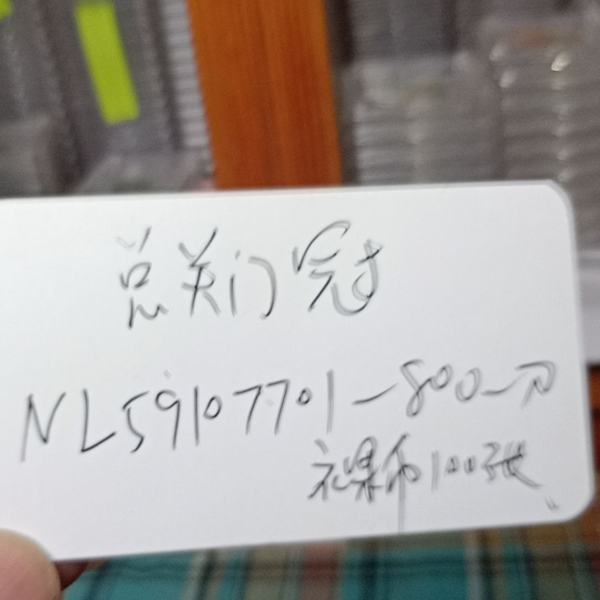 总关门冠
NL59107701-800一刀
裸币100张